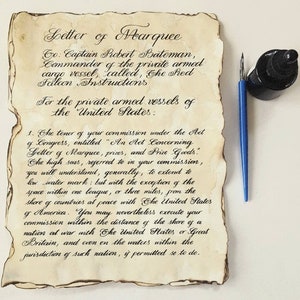 Letter of Marquee
To: Captain Robert Bateman,
Commander of the private armed
cargo vessel, called, The Red
Falcon, Instructions
For the private armed vessels of
the United States:
1. The tenor of your commission under the Act
of Congress, entitled "An Act Concerning
Letter of Marquee, prizes, and Prize Goods."
The high seas, referred to in your commission,
you will understand, generally, to extend to
low water mark; but with the exception of the
space within one league, or three miles, from the
shore of countries at peace with The United States
of America. You may nevertheless execute your
commission within the distance of the shore of a
nation at war with The United States or Great
Britain, and even on the waters within the
jurisdiction of such nation, if permitted so to do.